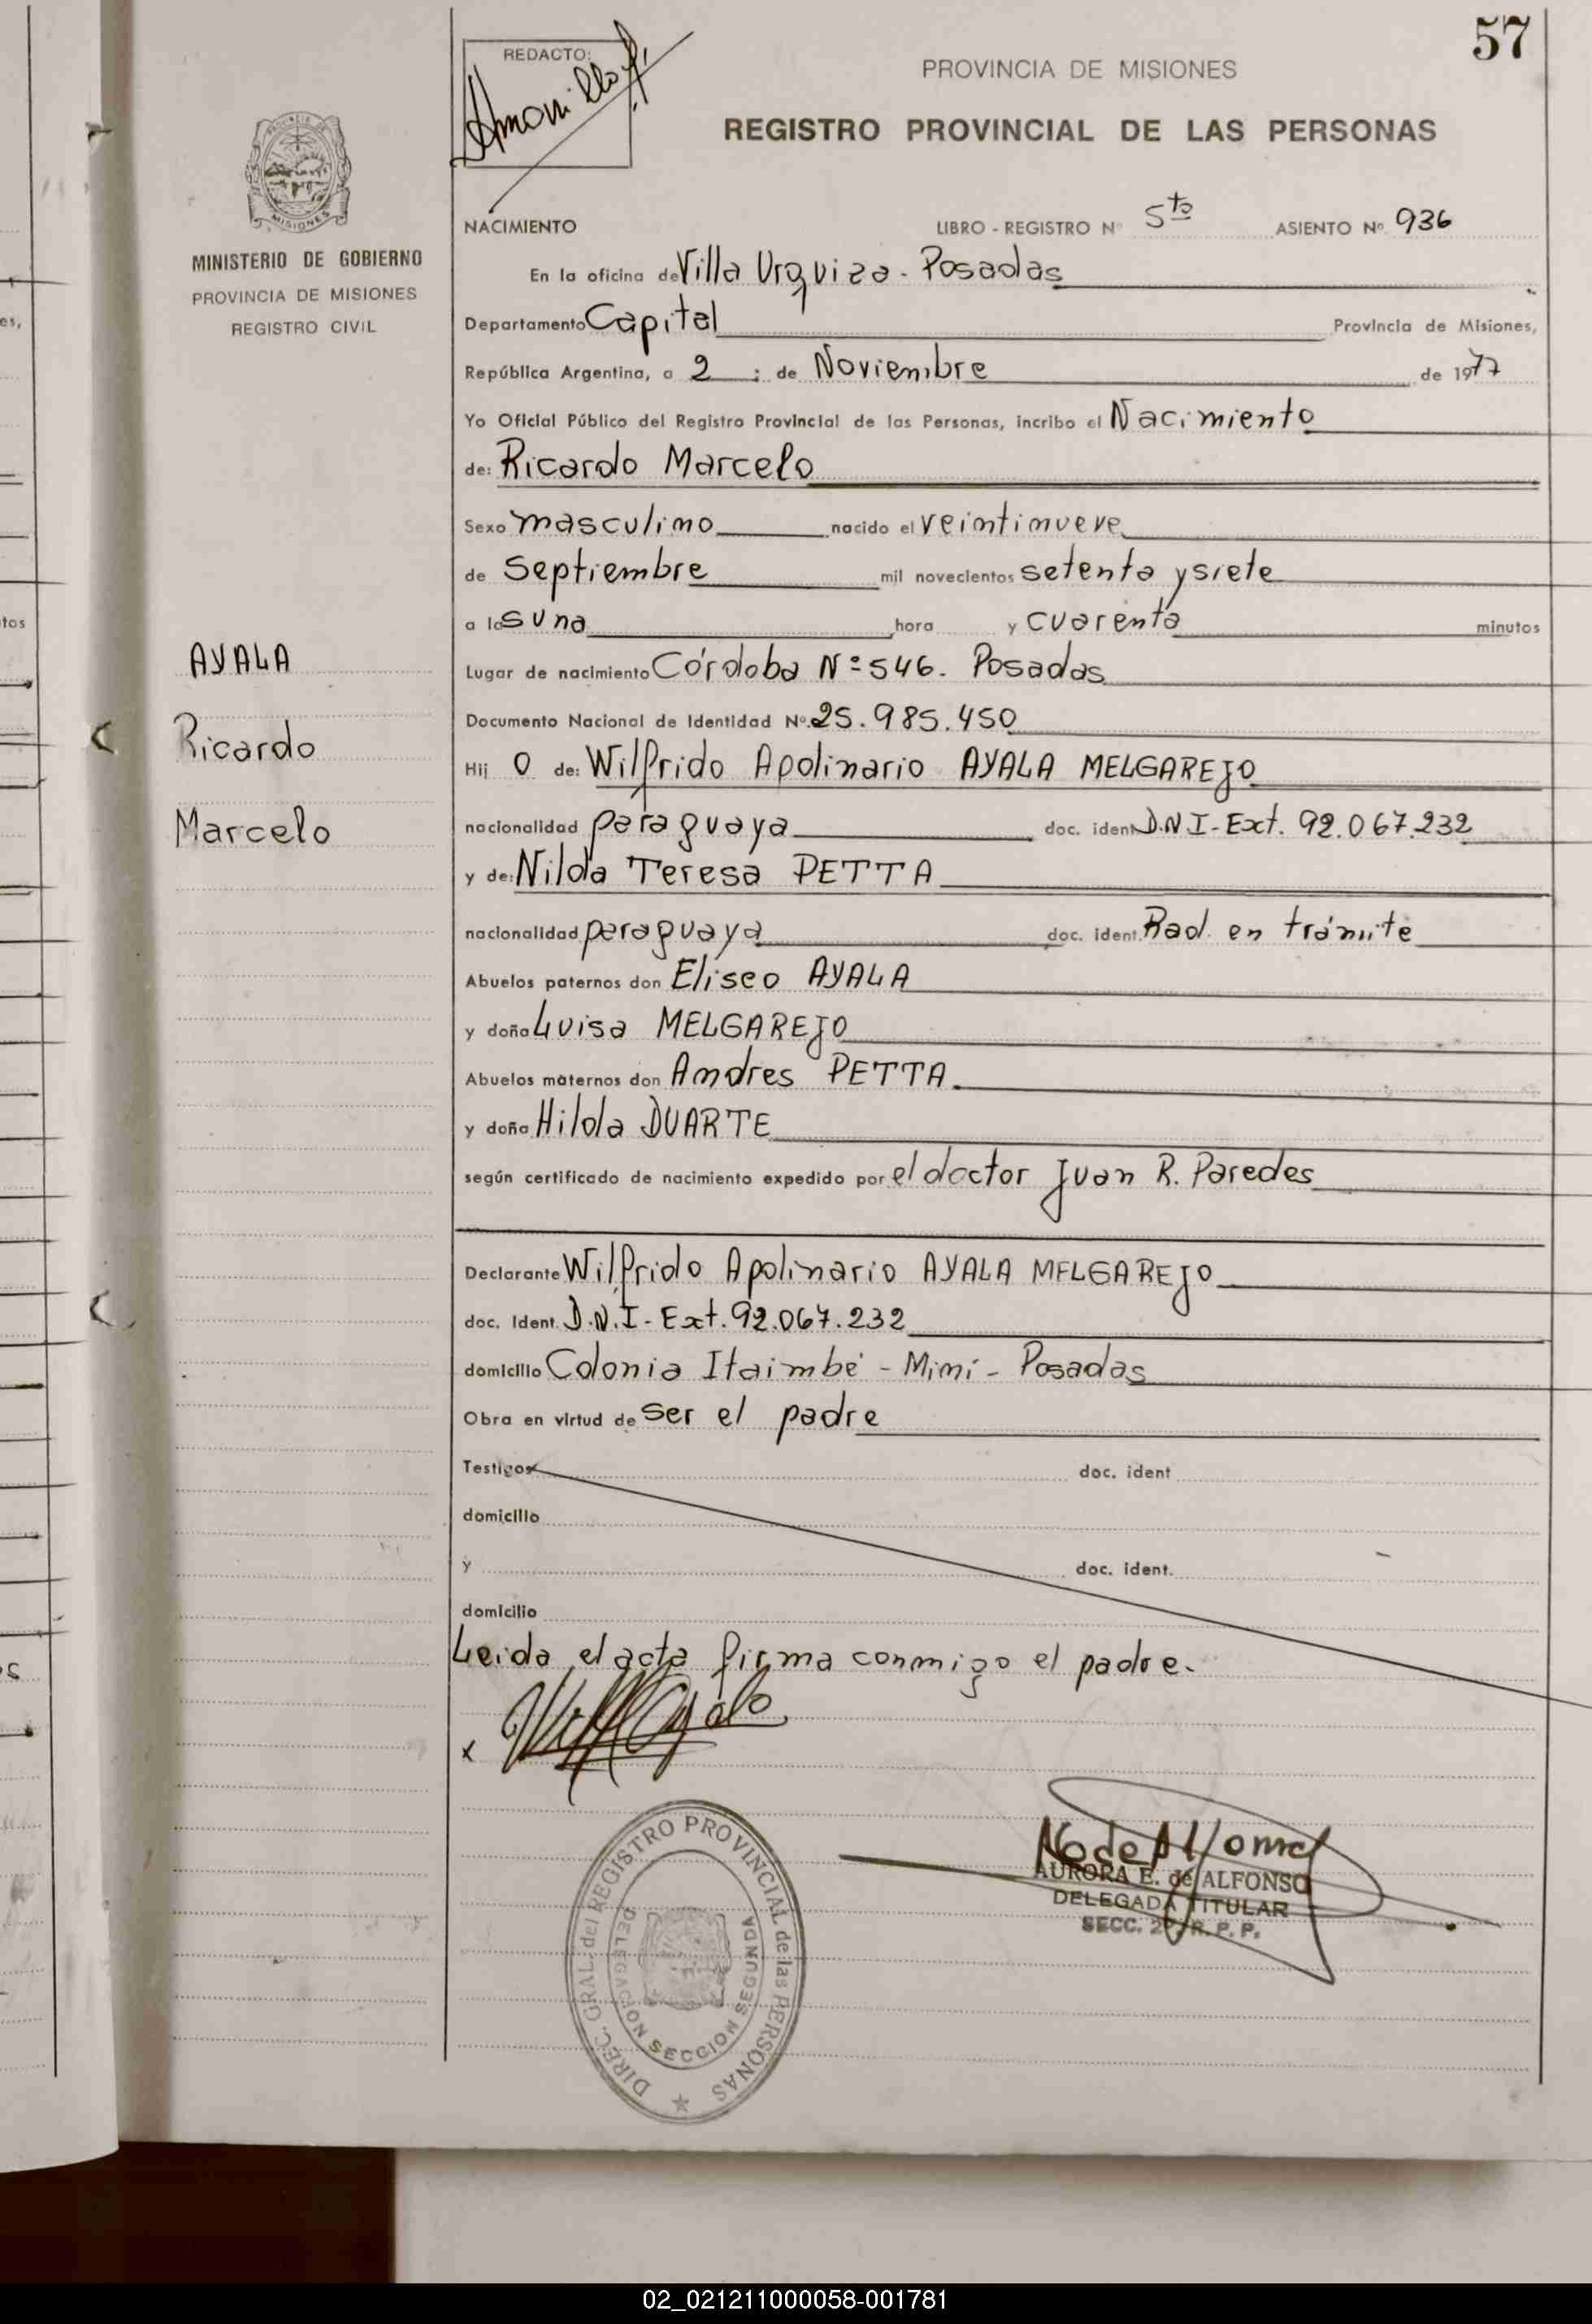 57
REDACTO:
PROVINCIA DE MISIONES
REGISTRO PROVINCIAL DE LAS PERSONAS
MISIONES
MINISTERIO DE GOBIERNO
PROVINCIA DE MISIONES
REGISTRO CIVIL
NACIMIENTO LIBRO - REGISTRO Nº 5to ASIENTO Nº 936
En la oficina de Villa Urquiza - Posadas
Departamento Capital Provincia de Misiones,
República Argentina, a 2 : de Noviembre de 1977
Yo Oficial Público del Registro Provincial de las Personas, incribo el Nacimiento
de: Ricardo Marcelo
Sexo masculino nacido el veintinueve
de Septiembre mil novecientos setenta y siete
a las una hora y cuarenta minutos
AYALA
Ricardo
Marcelo
Lugar de nacimiento Córdoba Nº 546. Posadas
Documento Nacional de Identidad Nº 25.985.450
Hij o de: Wilfrido Apolinario AYALA MELGAREJO
nacionalidad paraguaya doc. ident. D.N.I-Ext. 92.067.232
y de: Nilda Teresa PETTA
nacionalidad paraguaya doc. ident. Rad. en trámite
Abuelos paternos don Eliseo AYALA
y doña Luisa MELGAREJO
Abuelos maternos don Andres PETTA
y doña Hilda DUARTE
según certificado de nacimiento expedido por el doctor Juan R. Paredes
Declarante Wilfrido Apolinario AYALA MELGAREJO
doc. Ident. D.N.I - Ext. 92.067.232
domicilio Colonia Itaimbé - Miní - Posadas
Obra en virtud de ser el padre
Testigos doc. ident
domicilio
y doc. ident.
domicilio
Leida el acta firma conmigo el padre.
x
AURORA E. de ALFONSO
DELEGADA TITULAR
SECC. 2ª R. P. P.
DIREC. GRAL. del REGISTRO PROVINCIAL de las PERSONAS
DELEGACION SECCION SEGUNDA
02_021211000058-001781